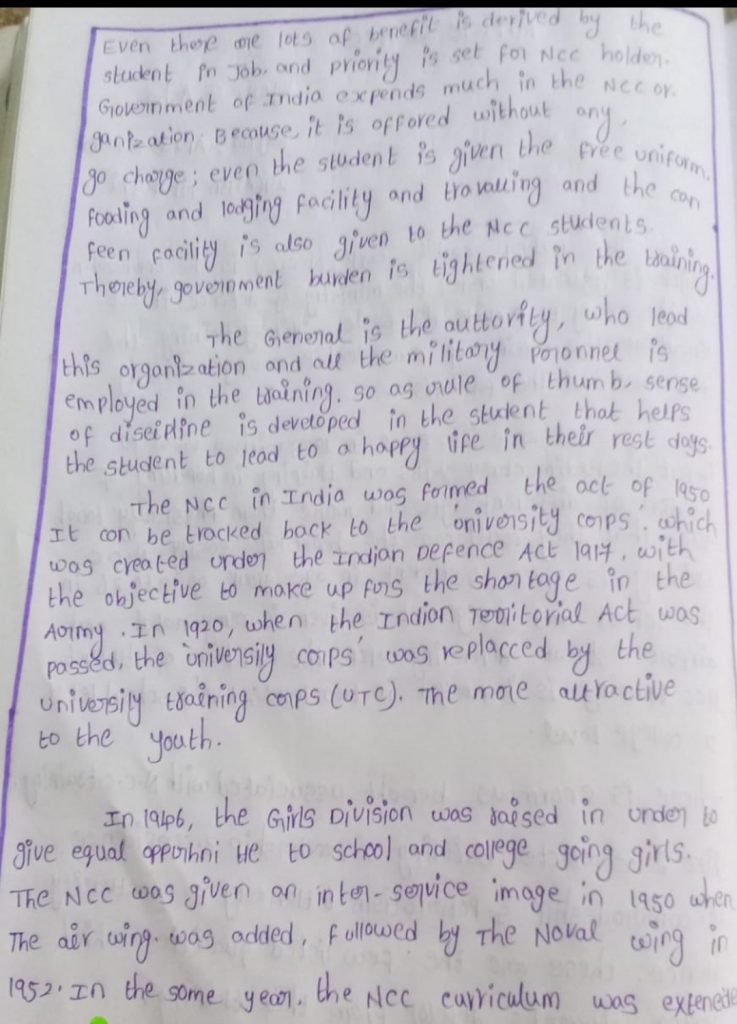 Even there are lots of benefit is derived by the
student in Job. and priority is set for NCC holder.
Government of India expends much in the NCC or-
ganization. Because, it is offored without any,
go charge; even the student is given the free uniform,
fooding and lodging facility and travaling and the can
feen facility is also given to the NCC students.
Thereby, government burden is tightened in the training.
The General is the auttority, who lead
this organization and all the military poronnel is
employed in the training. so as rule of thumb, sense
of discipline is developed in the student that helps
the student to lead to a happy life in their rest days.
The NCC in India was formed the act of 1950
It can be tracked back to the 'university corps'. which
was created under the Indian Defence Act 1917, with
the objective to make up for the shortage in the
Army. In 1920, when the Indian Territorial Act was
passed, the 'university corps' was replacced by the
University training corps (UTC). The more attractive
to the youth.
In 1946, the Girls Division was raised in under to
give equal opporhni He to school and college going girls.
The NCC was given an inter-service image in 1950 when
The air wing. was added, followed by The Naval wing in
1952. In the same year. the NCC curriculum was extende